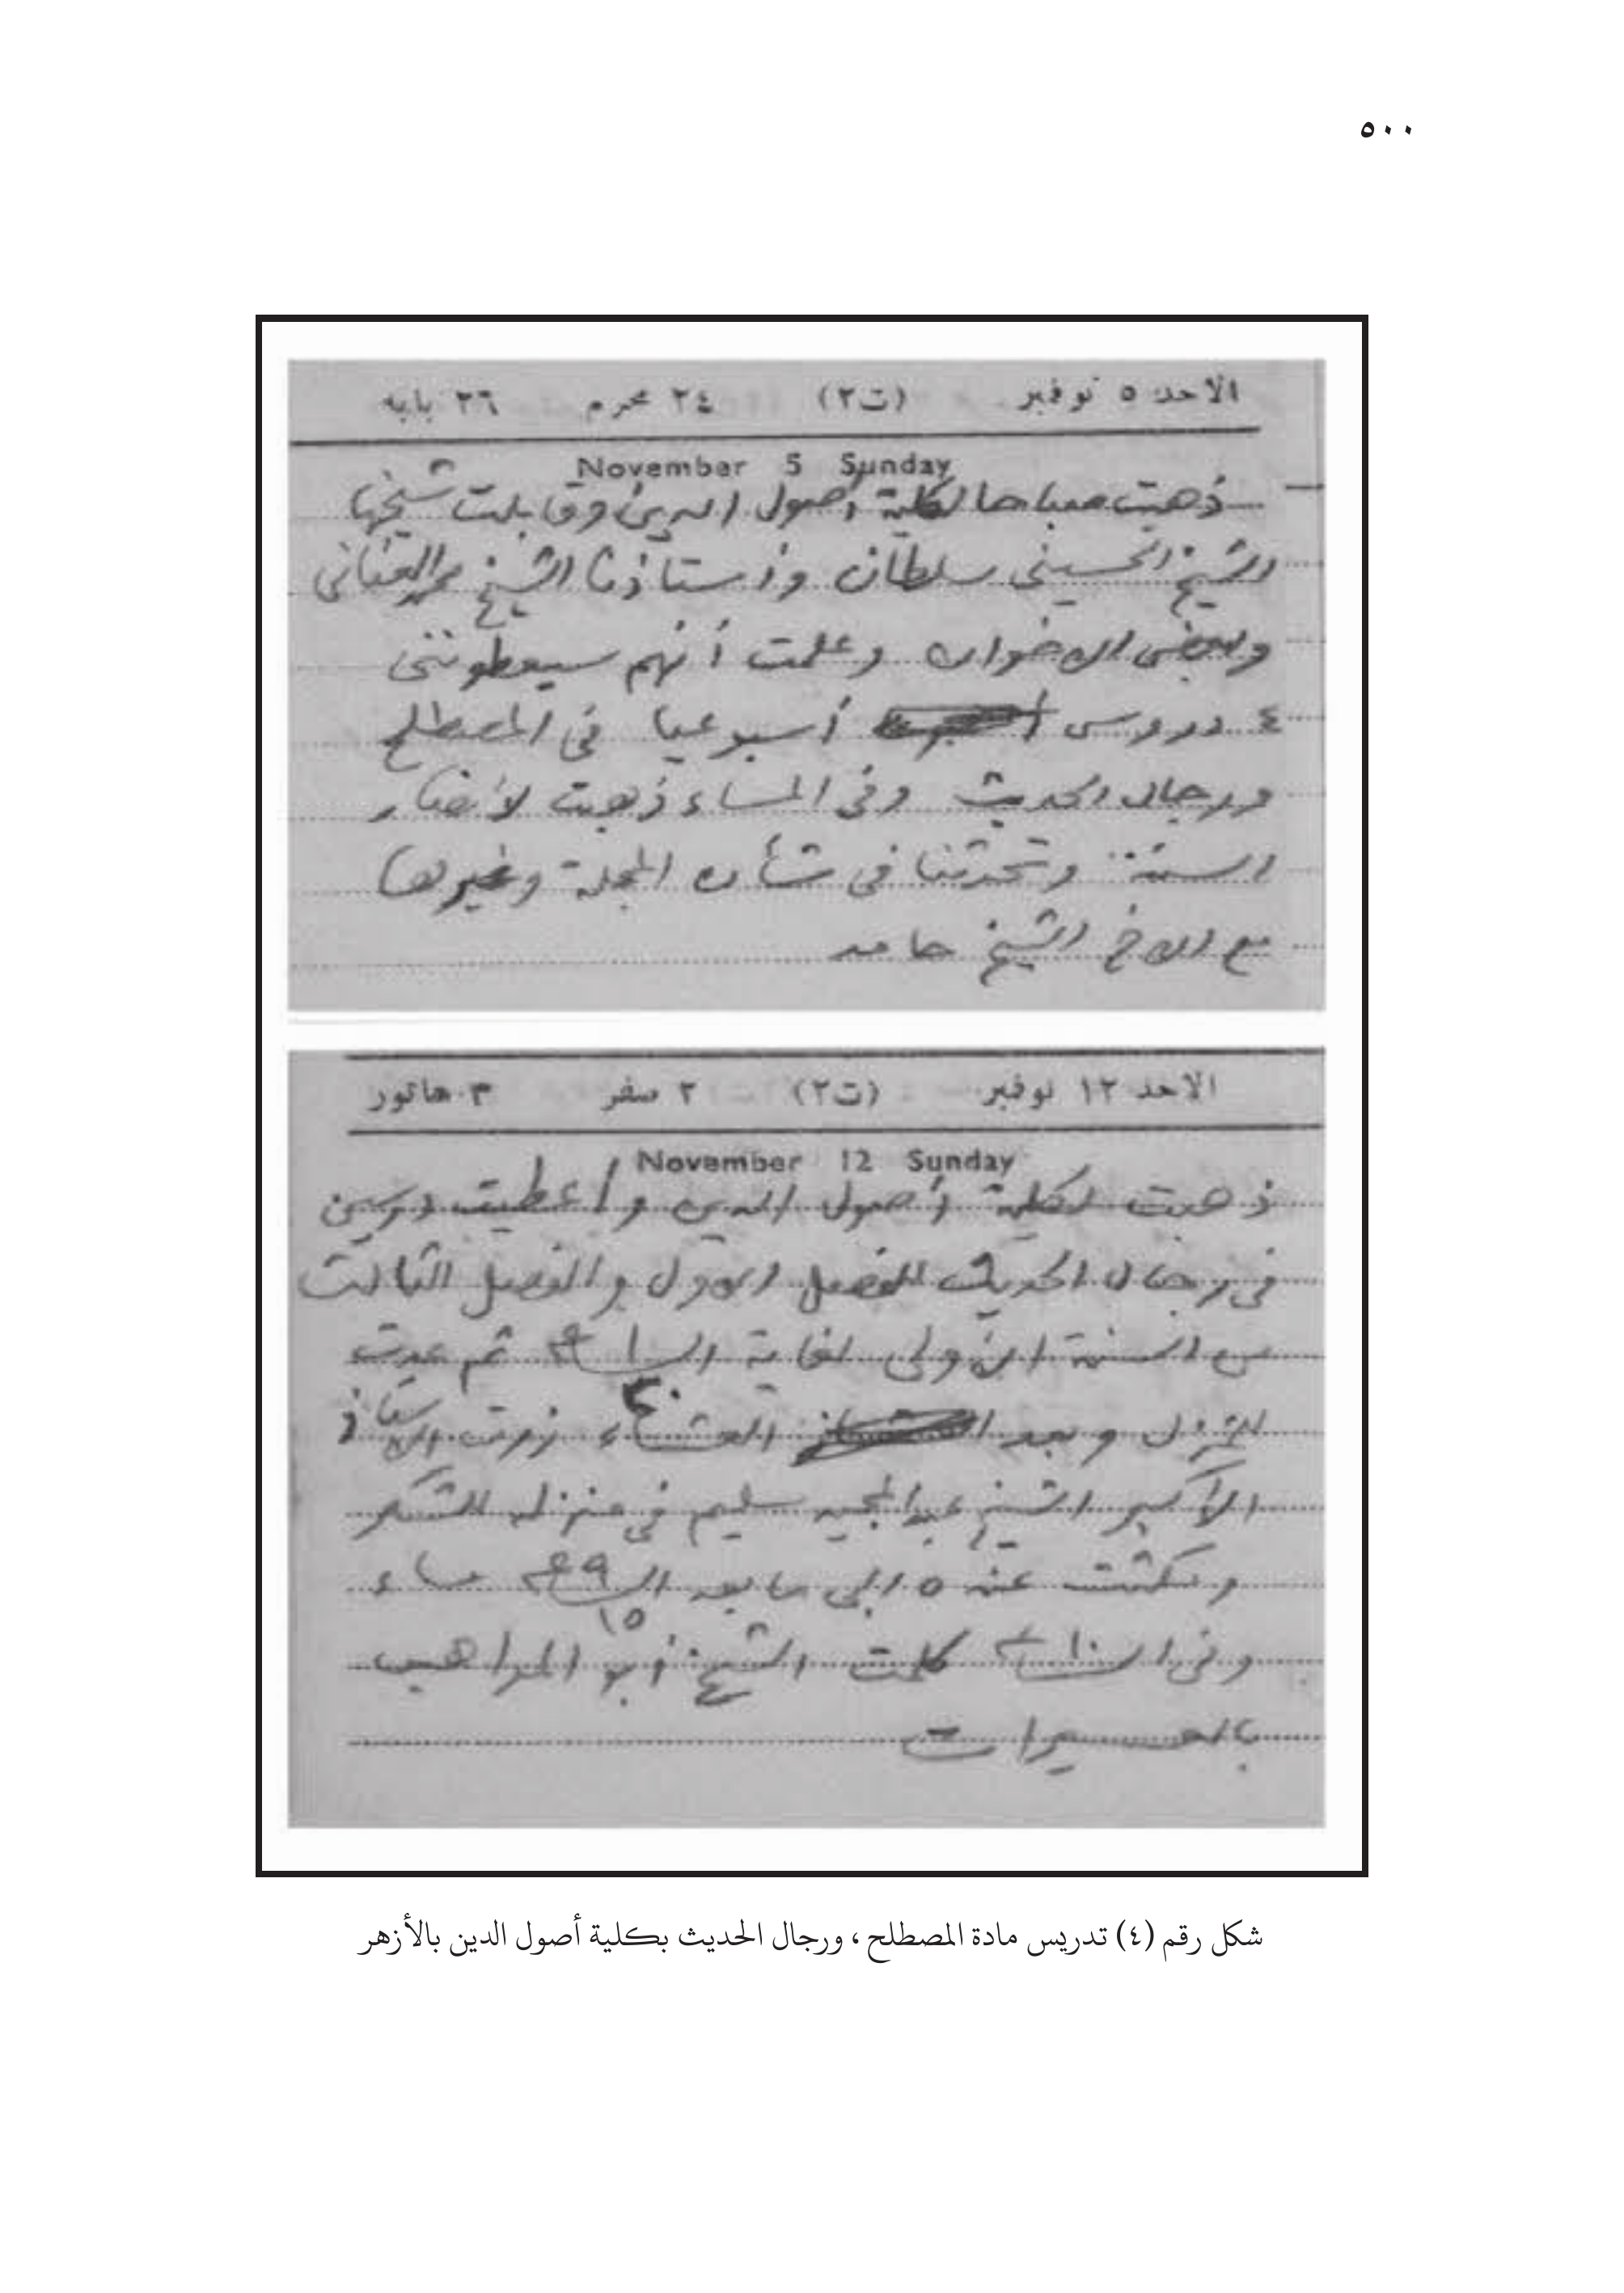 ٥٠٠
الاحد ٥ نوفمبر (ت٢) ٢٤ محرم ٢٦ بابه
November 5 Sunday
ذهبت صباحا لكلية أصول الدين وقابلت شيخها
الشيخ الحسيني سلطان وأستاذنا الشيخ محمد العناني
وبعض الاخوان وعلمت أنهم سيعطونني
٤ دروس أسبوعيا في المصطلح
ورجال الحديث وفي المساء ذهبت لأنصار
السنة وتحدثنا في شأن المجلة وغيرها
مع الاخ الشيخ حامد
الاحد ١٢ نوفمبر (ت٢) ٢ صفر ٣ هاتور
November 12 Sunday
ذهبت لكلية أصول الدين وأعطيت درسين
في رجال الحديث للفصل الأول والفصل الثالث
من السنة الأولى لغاية الساعة ١ ثم عدت
للمنزل وبعد العشاء زرت الاستاذ
الأكبر الشيخ عبد المجيد سليم في منزله للشكر
ومكثت عنده الى ما بعد الساعة ٩ مساء
١٥
وفي الساعة ١٠ كلمت الشيخ أبو المواهب